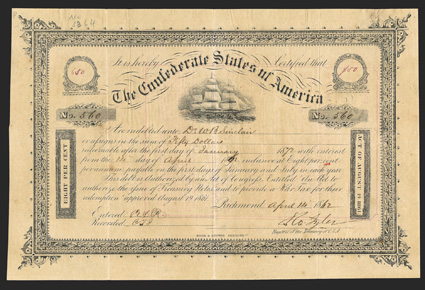 It is hereby Certified that
50
500
The Confederate States of America
No. 560
No. 560
EIGHT PER CENT
ACT OF AUGUST 19 1861
is indebted unto Dr W B Sinclair
or assigns in the sum of Fifty Dollars
redeemable after the first day of January 1877 with interest
from the 14 day of April inclusive at Eight per cent
per annum payable on the first days of January and July in each year
This debt is authorized by an Act of Congress, Entitled, "An Act to
authorize the issue of Treasury Notes and to provide a War Tax for their
redemption" approved August 19 1861
Richmond April 14 1862
Entered
Recorded
Tyler